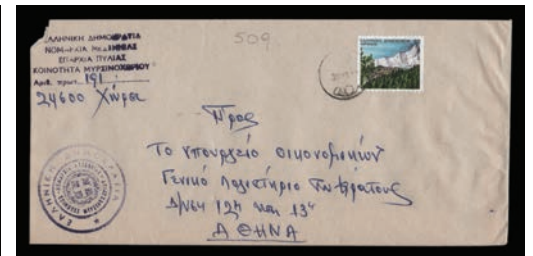 ΕΛΛΗΝΙΚΗ ΔΗΜΟΚΡΑΤΙΑ
ΝΟΜΑΡΧΙΑ ΜΕΣΣΗΝΙΑΣ
ΕΠΑΡΧΙΑ ΠΥΛΙΑΣ
ΚΟΙΝΟΤΗΤΑ ΜΥΡΣΙΝΟΧΩΡΙΟΥ
Αριθ. πρωτ. 191
24600 Χώρα
509
Προς
Το Υπουργείο Οικονομικών
Γενικό Λογιστήριο του Κράτους
Δ/νση 12η και 13η
ΑΘΗΝΑ
ΕΛΛΗΝΙΚΗ ΔΗΜΟΚΡΑΤΙΑ